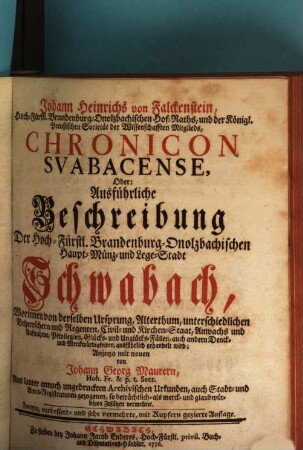 Johann Heinrichs von Falckenstein,
Hoch-Fürstl. Brandenburg-Onolzbachischen Hof-Raths, und der Königl.
Preußischen Societät der Wissenschafften Mitglieds,
CHRONICON
SVABACENSE,
Oder:
Ausführliche
Beschreibung
Der Hoch-Fürstl. Brandenburg-Onolzbachischen
Haupt-Münz- und Lege-Stadt
Schwabach,
Worinnen von derselben Ursprung, Alterthum, unterschiedlichen
Beherrschern und Regenten, Civil- und Kirchen-Staat, Anwachs und
Aufnahm, Privilegien, Glücks- und Unglücks-Fällen, auch andern Denck-
und Merckwürdigkeiten, ausführlich gehandelt wird;
Anjezo mit neuen
von
Johann Georg Maurern,
Hoh. Fr. & p. t. Secr.
Aus lauter annoch ungedruckten Archivischen Urkunden, auch Stadt- und
Amts-Registraturen gezogenen, so beträchtlich- als merck- und glaubwür-
digen Zusäzen vermehrte.
Zweyte, verbessert- und sehr vermehrte, mit Kupfern gezierte Auflage.
SCHWABACH,
Zu finden bey Johann Jacob Enderes, Hoch-Fürstl. privil. Buch-
und Disputations-Händler. 1756.